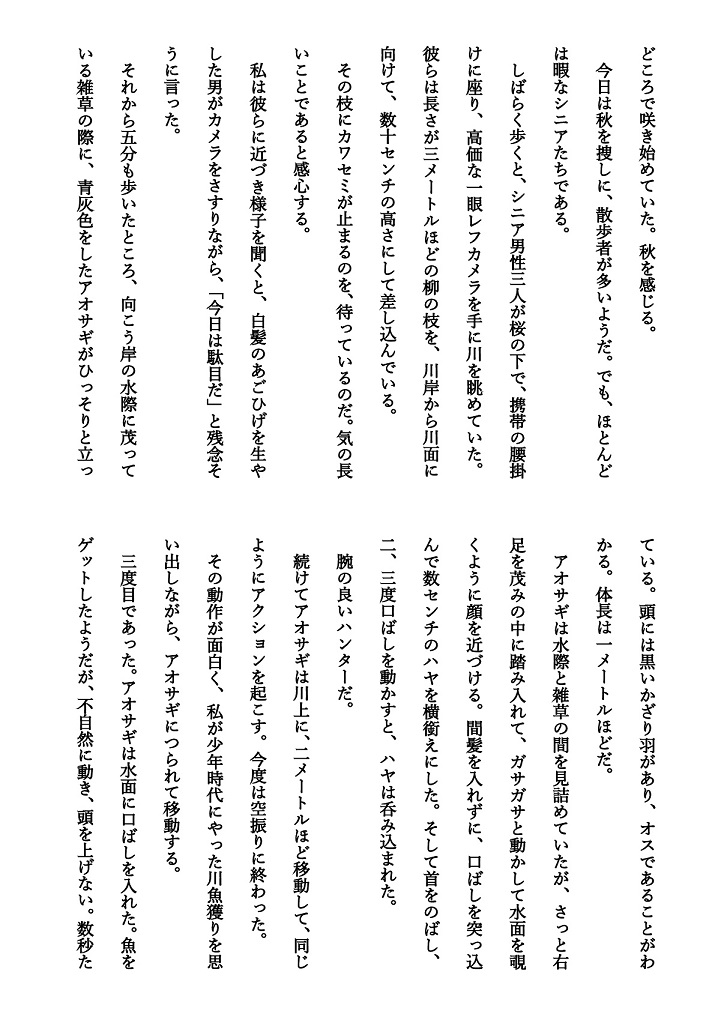 どころで咲き始めていた。秋を感じる。
　今日は秋を捜しに、散歩者が多いようだ。でも、ほとんど
は暇なシニアたちである。
　しばらく歩くと、シニア男性三人が桜の下で、携帯の腰掛
けに座り、高価な一眼レフカメラを手に川を眺めていた。
彼らは長さが三メートルほどの柳の枝を、川岸から川面に
向けて、数十センチの高さにして差し込んでいる。
　その枝にカワセミが止まるのを、待っているのだ。気の長
いことであると感心する。
　私は彼らに近づき様子を聞くと、白髪のあごひげを生や
した男がカメラをさすりながら、「今日は駄目だ」と残念そ
うに言った。
　それから五分も歩いたところ、向こう岸の水際に茂って
いる雑草の際に、青灰色をしたアオサギがひっそりと立っ
ている。頭には黒いかざり羽があり、オスであることがわ
かる。体長は一メートルほどだ。
　アオサギは水際と雑草の間を見詰めていたが、さっと右
足を茂みの中に踏み入れて、ガサガサと動かして水面を覗
くように顔を近づける。間髪を入れずに、口ばしを突っ込
んで数センチのハヤを横銜えにした。そして首をのばし、
二、三度口ばしを動かすと、ハヤは呑み込まれた。
　腕の良いハンターだ。
　続けてアオサギは川上に、二メートルほど移動して、同じ
ようにアクションを起こす。今度は空振りに終わった。
　その動作が面白く、私が少年時代にやった川魚獲りを思
い出しながら、アオサギにつられて移動する。
　三度目であった。アオサギは水面に口ばしを入れた。魚を
ゲットしたようだが、不自然に動き、頭を上げない。数秒た